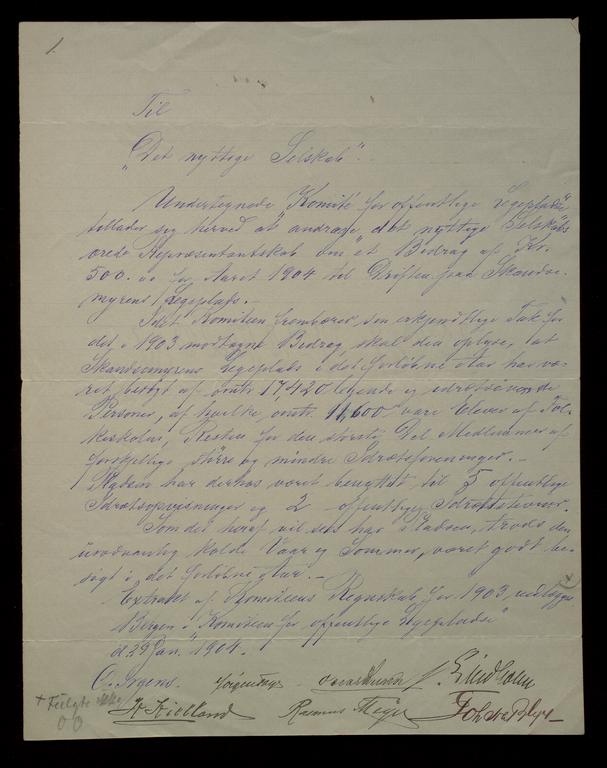 1.
Til
„Det nyttige Selskab".
Undertegnede „Komité for offentlige Legepladse"
tillader sig herved at andrage det nyttige Selskabs
ærede Repræsentantskab om et Bidrag af Kr.
500.00 for Aaret 1904 til Driften paa Skandse-
myrens Legeplads.-
Idet Komiteen frembærer sin erkjendtlige Tak for
det i 1903 modtagne Bidrag, skal den oplyse, at
Skandsemyrens Legeplads i det forløbne Aar har væ-
ret besøgt af omtr. 17,420 legende og idrætsøvende
Personer, af hvilke omtr. 11,600 vare Elever af Fol-
keskolen, Resten for den største Del Medlemmer af
forskjellige større og mindre Idrætsforeninger.-
Pladsen har derhos været benyttet til 5 offentlige
Idrætsopvisninger og 2 offentlige Idrætsstevner.
Som det heraf vil sees har Pladsen, trods den
usædvanlig kolde Vaar og Sommer, været godt be-
søgt i det forløbne Aar.-
Extrakt af Komiteens Regnskab for 1903 vedlægges
Bergen i Komiteen for offentlige Legepladse
d. 29 Jan. 1904.
C. Irgens.
Kielland Rasmus Meyer
+ Fulgte ikke